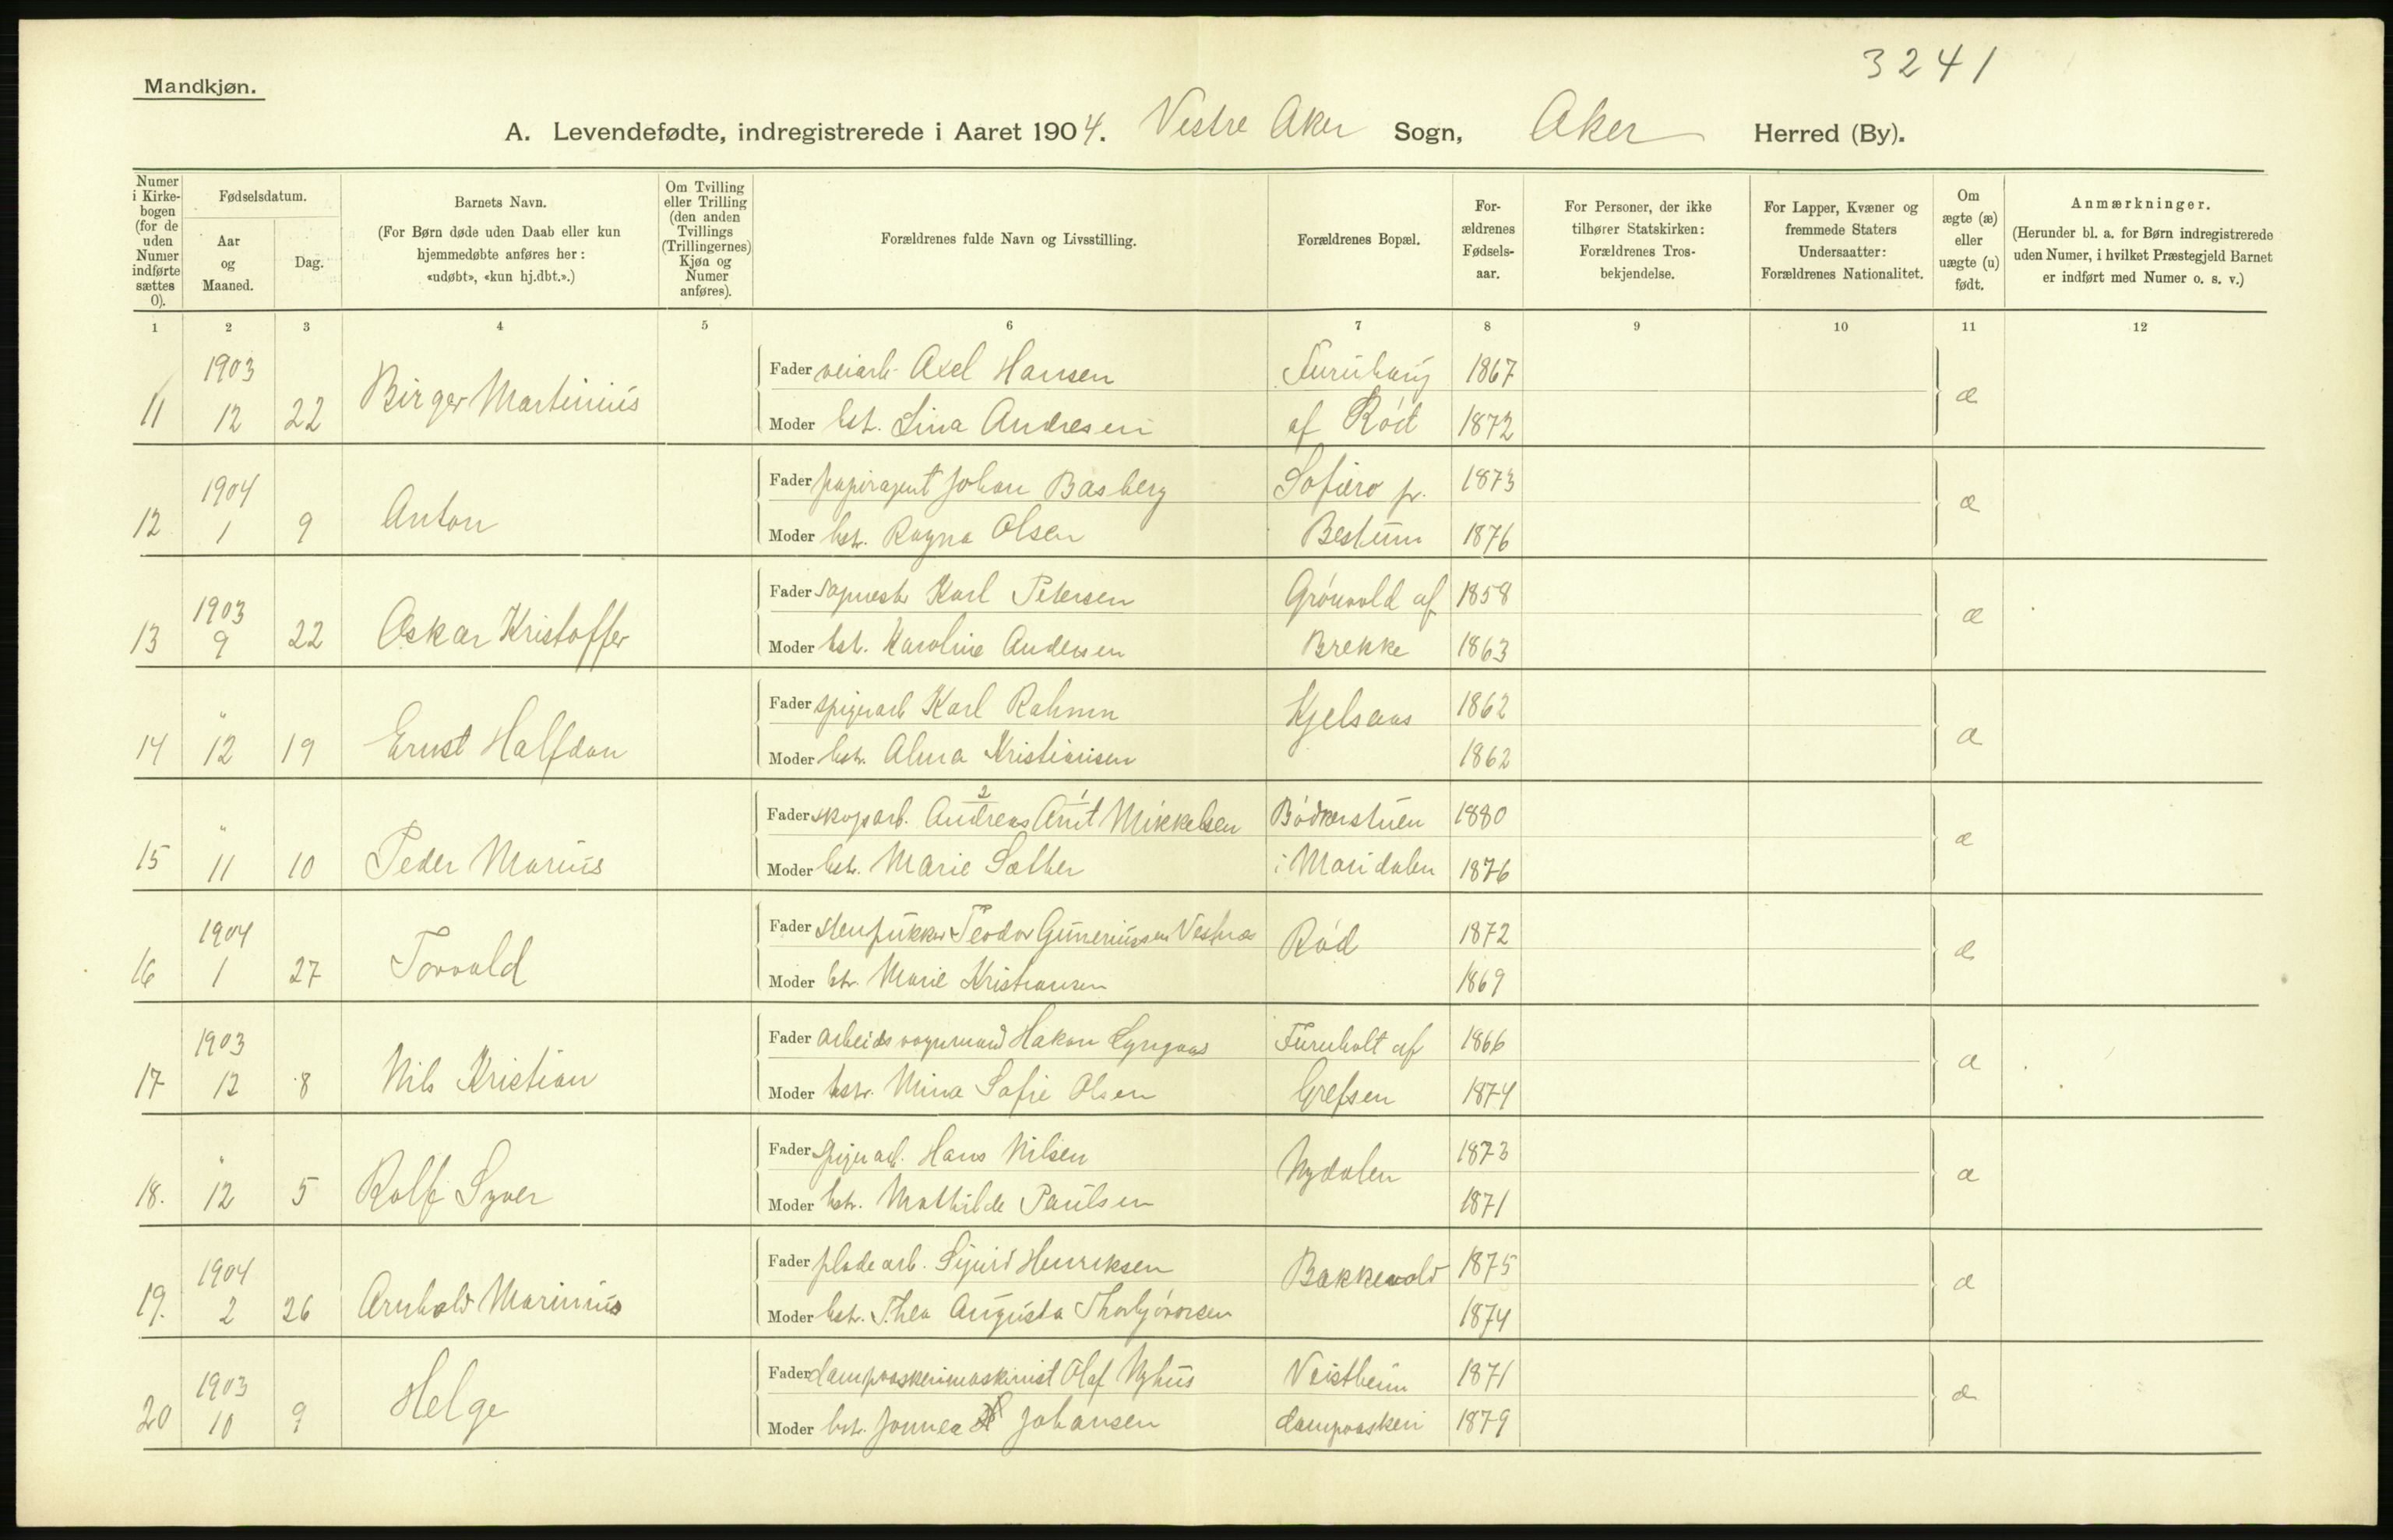 3241
Mandkjøn.
A. Levendefødte, indregistrerede i Aaret 1904. Vestre Aker Sogn, Aker Herred (By).
Numer i Kirkebogen (for de uden Numer indførte sættes 0).
Fødselsdatum.
Aar og Maaned.
Dag.
Barnets Navn.
(For Børn døde uden Daab eller kun hjemmedøbte anføres her: «udøbt», «kun hj.dbt.».)
Om Tvilling eller Trilling (den anden Tvillings (Trillingernes) Kjøn og Numer anføres).
Forældrenes fulde Navn og Livsstilling.
Forældrenes Bopæl.
Forældrenes Fødselsaar.
For Personer, der ikke tilhører Statskirken: Forældrenes Trosbekjendelse.
For Lapper, Kvæner og fremmede Staters Undersaatter: Forældrenes Nationalitet.
Om ægte (æ) eller uægte (u) født.
Anmærkninger.
(Herunder bl. a. for Børn indregistrerede uden Numer, i hvilket Præstegjeld Barnet er indført med Numer o. s. v.)
1 2 3 4 5 6 7 8 9 10 11 12
1903 Fader veiarb. Axel Hansen 1867
11 12 22 Birger Martinius Moder hst. Lina Andresen af Rød 1872 æ
1904 Fader papiragent Johan Basberg Sofiero pr. 1873
12 1 9 Anton Moder hst. Ragna Olsen Bestum 1876 æ
1903 Fader Karl Petersen Grönvold af 1858
13 9 22 Oskar Kristoffer Moder hst. Karoline Andersen Brekke 1863 æ
" Fader spigerarb Karl Rahmn Kjelsaas 1862
14 12 19 Ernst Halfdan Moder hst. Alma Kristiansen 1862 æ
2 1
" Fader skogsarb. Andreas Arnt Mikkelsen Bödkerstuen 1880
15 11 10 Peder Marius Moder hst. Marie Sæther i Maridalen 1876 æ
1904 Fader stenpukker Teodor Guneriussen Rød 1872
16 1 27 Torvald Moder hst. Marie Kristiansen 1869 æ
1903 Fader arbeidsvognmand Hakon Lyngaas Furuholt af 1866
17 12 8 Nils Kristian Moder hst. Mina Sofie Olsen Grefsen 1874 æ
" Fader spigerarb. Hans Nilsen Nydalen 1873
18. 12 5 Rolf Syver Moder hst. Mathilde Paulsen 1871 æ
1904 Fader pladearb. Sigurd Henriksen Bakkevold 1875
19. 2 26 Arnhold Marinius Moder hst. Thea Augusta Thorbjörnsen 1874 æ
1903 Fader dampvaskerimaskinist Olaf Nyhus 1871
20 10 9 Helge Moder hst. Johansen dampvaskeri 1879 æ